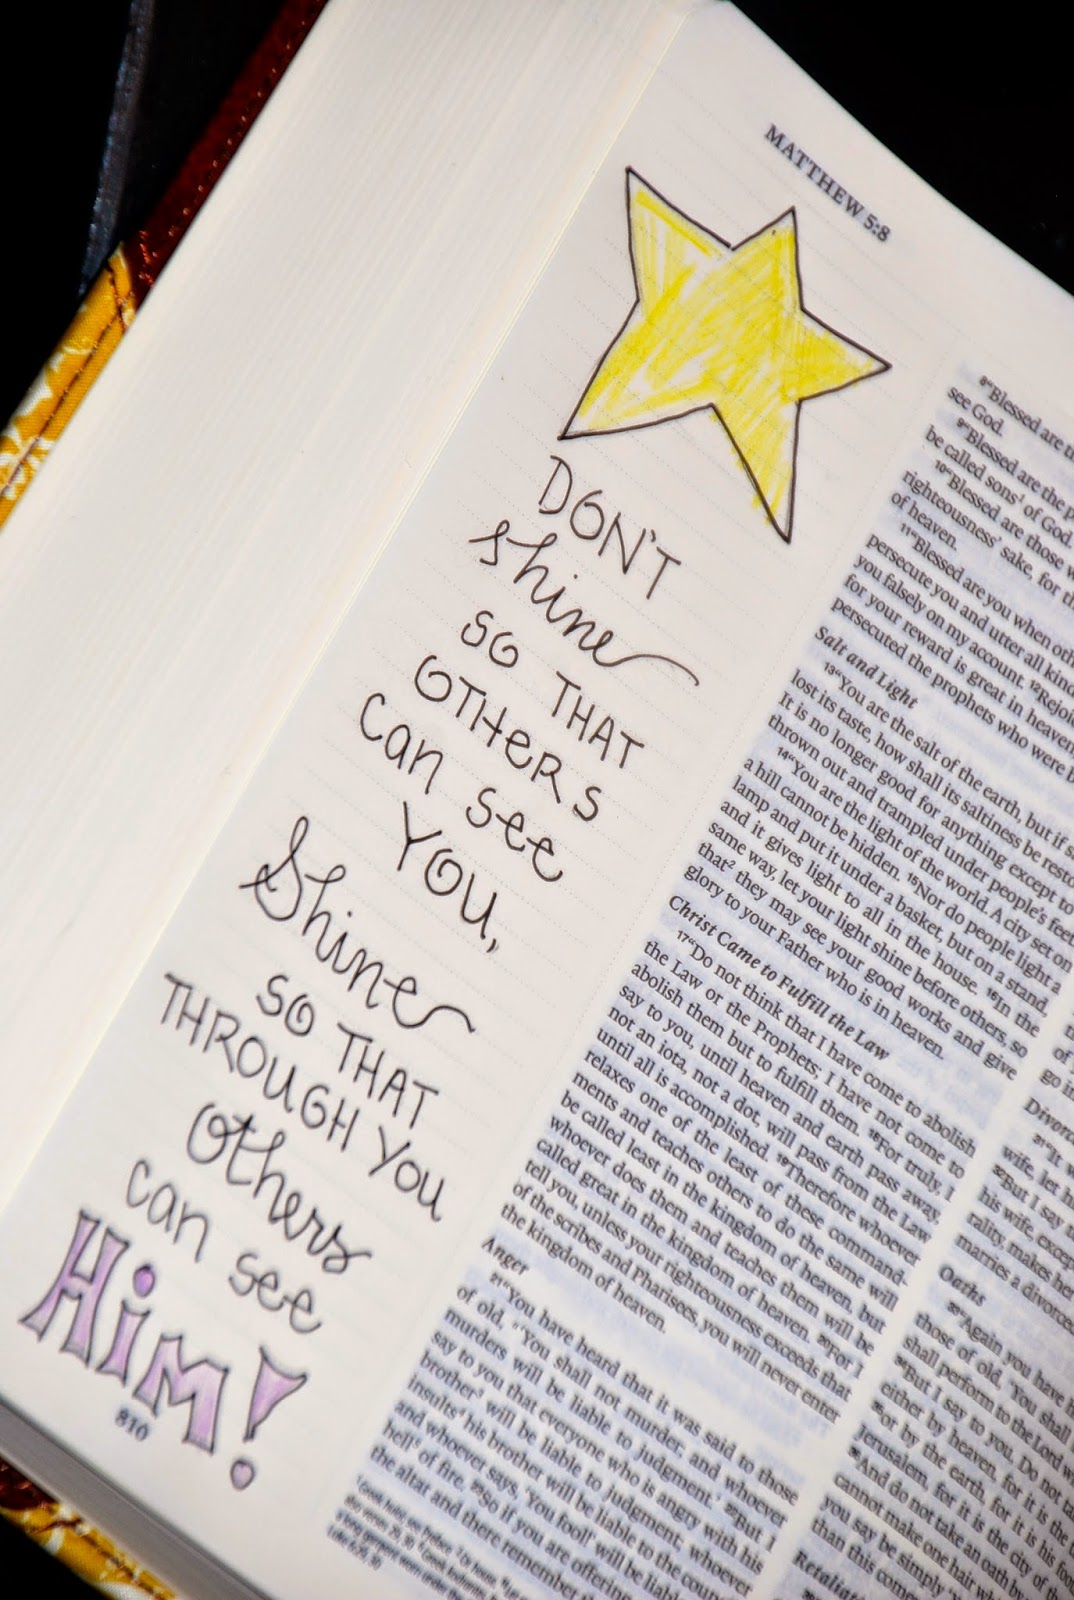 MATTHEW 5:8
DON'T
shine
SO THAT
OTHERS
can see
YOU,
Shine
SO THAT
THROUGH YOU
Others
can see
Him!
810
8"Blessed are
see God.
9"Blessed are the
be called sons1 of God.
10"Blessed are those
righteousness' sake, for
of heaven.
11"Blessed are you when
persecute you and utter all
you falsely on my account. 12Rejoice
for your reward is great in heaven,
persecuted the prophets who were
Salt and Light
13"You are the salt of the earth, but if
lost its taste, how shall its saltiness be
It is no longer good for anything except to
thrown out and trampled under people's feet.
14"You are the light of the world. A city set on
a hill cannot be hidden. 15Nor do people light a
lamp and put it under a basket, but on a stand,
and it gives light to all in the house. 16In the
same way, let your light shine before others, so
that2 they may see your good works and give
glory to your Father who is in heaven.
Christ Came to Fulfill the Law
17"Do not think that I have come to abolish
the Law or the Prophets; I have not come to
abolish them but to fulfill them. 18For truly, I
say to you, until heaven and earth pass away,
not an iota, not a dot, will pass from the Law
until all is accomplished. 19Therefore whoever
relaxes one of the least of these command-
ments and teaches others to do the same will
be called least in the kingdom of heaven, but
whoever does them and teaches them will be
called great in the kingdom of heaven. 20For I
tell you, unless your righteousness exceeds that
of the scribes and Pharisees, you will never enter
the kingdom of heaven.
Anger
21"You have heard that it was said to those
of old, 'You shall not murder; and whoever
murders will be liable to judgment.' 22But I
say to you that everyone who is angry with his
brother3 will be liable to judgment; whoever
insults4 his brother will be liable to the
and whoever says, 'You fool!' will be liable
hell5 of fire. 23So if you are offering
the altar and there remember
of
go
31"It
wife, let
32But I say
his wife, except
marries a divorced
Oaths
33"Again you have
those of old, 'You shall
shall perform to the Lord
34But I say to you, Do not
either by heaven, for it is the
35or by the earth, for it is his
Jerusalem, for it is the city of
36And do not take an oath by
cannot make one hair
you say be simply
than this